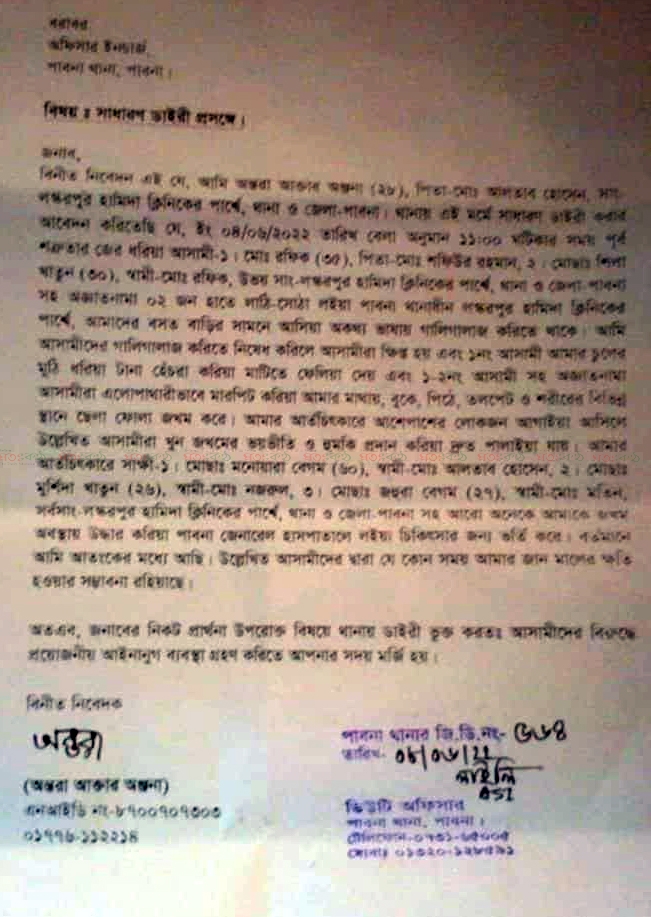 বরাবর
অফিসার ইনচার্জ,
পাবনা থানা, পাবনা।
বিষয় ঃ সাধারণ ডাইরী প্রসঙ্গে।
জনাব,
বিনীত নিবেদন এই যে, আমি অন্তরা আক্তার অঞ্জনা (২৮), পিতা-মোঃ আলতাব হোসেন, সাং-
লস্করপুর হামিদা ক্লিনিকের পার্শ্বে, থানা ও জেলা-পাবনা। থানায় এই মর্মে সাধারণ ডাইরী করার
আবেদন করিতেছি যে, ইং ০৪/০৬/২০২২ তারিখ বেলা অনুমান ১১:০০ ঘটিকার সময় পূর্ব
শত্রুতার জের ধরিয়া আসামী-১। মোঃ রফিক (৩৫), পিতা-মোঃ শফিউর রহমান, ২। মোছাঃ শিলা
খাতুন (৩০), স্বামী-মোঃ রফিক, উভয় সাং-লস্করপুর হামিদা ক্লিনিকের পার্শ্বে, থানা ও জেলা-পাবনা
সহ অজ্ঞাতনামা ০২ জন হাতে লাঠি-সোঠা লইয়া পাবনা থানাধীন লস্করপুর হামিদা ক্লিনিকের
পার্শ্বে, আমাদের বসত বাড়ির সামনে আসিয়া অকথ্য ভাষায় গালিগালাজ করিতে থাকে। আমি
আসামীদের গালিগালাজ করিতে নিষেধ করিলে আসামীরা ক্ষিপ্ত হয় এবং ১নং আসামী আমার চুলের
মুঠি ধরিয়া টানা হেঁচরা করিয়া মাটিতে ফেলিয়া দেয় এবং ১-২নং আসামী সহ অজ্ঞাতনামা
আসামীরা এলোপাথারীভাবে মারপিট করিয়া আমার মাথায়, বুকে, পিঠে, তলপেট ও শরীরের বিভিন্ন
স্থানে ছেলা ফোলা জখম করে। আমার আর্তচিৎকারে আশেপাশের লোকজন আগাইয়া আসিলে
উল্লেখিত আসামীরা খুন জখমের ভয়ভীতি ও হুমকি প্রদান করিয়া দ্রুত পালাইয়া যায়। আমার
আর্তচিৎকারে সাক্ষী-১। মোছাঃ মনোয়ারা বেগম (৬০), স্বামী-মোঃ আলতাব হোসেন, ২। মোছাঃ
মুর্শিদা খাতুন (২৬), স্বামী-মোঃ নজরুল, ৩। মোছাঃ জহুরা বেগম (২৭), স্বামী-মোঃ মতিন,
সর্বসাং-লস্করপুর হামিদা ক্লিনিকের পার্শ্বে, থানা ও জেলা-পাবনা সহ আরো অনেকে আমাকে জখম
অবস্থায় উদ্ধার করিয়া পাবনা জেনারেল হাসপাতালে লইয়া চিকিৎসার জন্য ভর্তি করে। বর্তমানে
আমি আতংকের মধ্যে আছি। উল্লেখিত আসামীদের দ্বারা যে কোন সময় আমার জান মালের ক্ষতি
হওয়ার সম্ভাবনা রহিয়াছে।
অতএব, জনাবের নিকট প্রার্থনা উপরোক্ত বিষয়ে থানায় ডাইরী ভুক্ত করতঃ আসামীদের বিরুদ্ধে
প্রয়োজনীয় আইনানুগ ব্যবস্থা গ্রহণ করিতে আপনার সদয় মর্জি হয়।
বিনীত নিবেদক
অন্তরা
(অন্তরা আক্তার অঞ্জনা)
এনআইডি নং-৮৭০০৭০৭৩০৩
০১৭৭৬-১১২২১৪
পাবনা থানার জি.ডি.নং- ৩৬৪
তারিখ- ০৮/০৬/২২
লাইলি
ASI
ডিউটি অফিসার
পাবনা থানা, পাবনা।
টেলিফোন-০৭৩১-৬৫০০৫